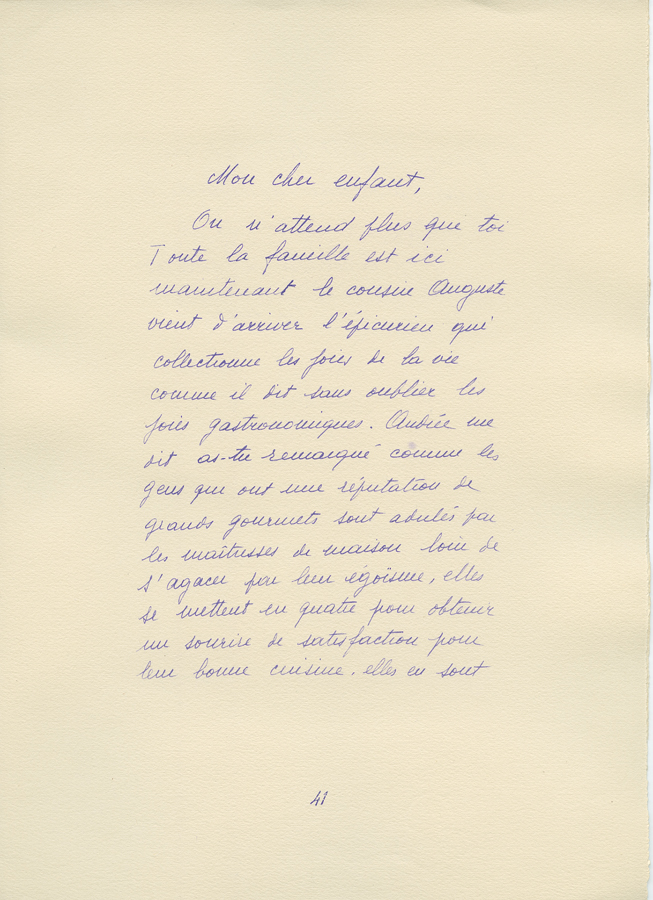 Mon cher enfant,
On n'attend plus que toi
Toute la famille est ici
maintenant le cousin Auguste
vient d'arriver l'épicurien qui
collectionne les joies de la vie
comme il dit sans oublier les
joies gastronomiques. Andrée me
dit as-tu remarqué comme les
gens qui ont une réputation de
grands gourmets sont adulés par
les maîtresses de maison loin de
s'agacer par leur égoïsme, elles
se mettent en quatre pour obtenir
un sourire de satisfaction pour
leur bonne cuisine. elles en sont
41